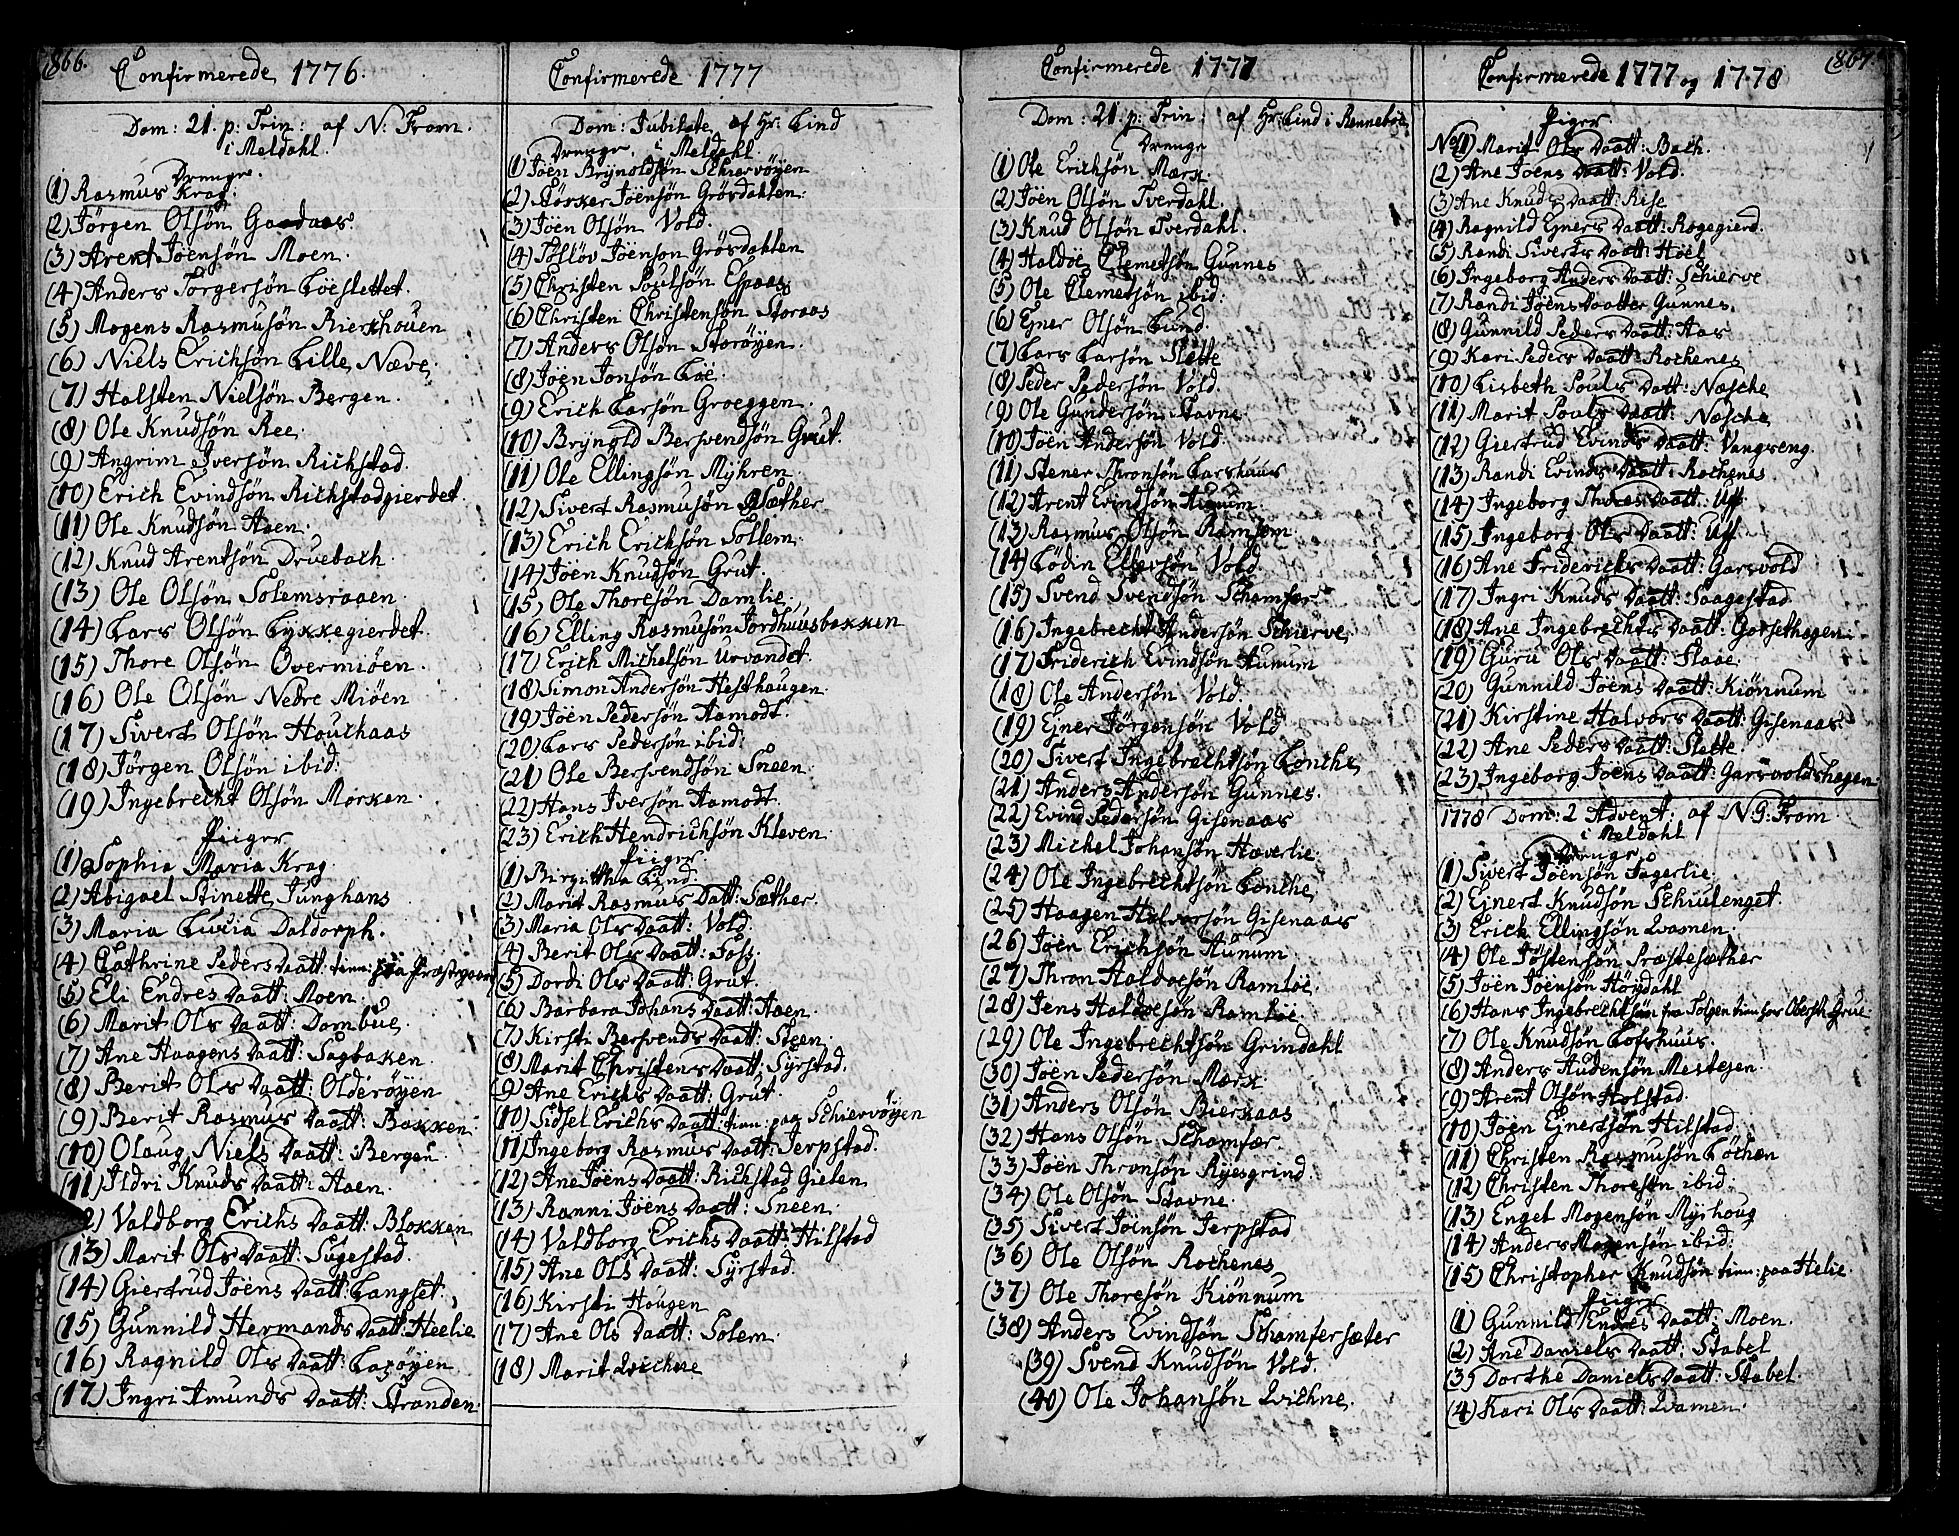 866.
Confirmerede 1776.
Dom: 21. p: Trin: af N: From.
i Meldahl.
Drenge.
(1) Rasmus Krag.
(2) Jörgen Olsön Gaadaas.
(3) Arent Jöensön Moen.
(4) Anders Torgersön Löeslettet.
(5) Mogens Rasmusön Rierkhouen
(6) Niels Erichsön Lille Næve.
(7) Halsten Nielsön Bergen.
(8) Ole Knudsön Ree.
(9) Angrim Iversön Richstad.
(10) Erich Evindsön Richstadgierdet.
(11) Ole Knudsön Aaen.
(12) Knud Arentsön Druebach.
(13) Ole Olsön Solemsraaen.
(14) Lars Olsön Lykkegierdet.
(15) Thore Olsön Overmiöen.
(16) Ole Olsön Nedre Miöen
(17) Sivert Olsön Houchaas
(18) Jörgen Olsön ibid.
(19) Ingebrecht Olsön Mörken.
Piiger
(1) Sophia Maria Krag
(2) Abigael Stinette Junghans
(3) Maria Lucia Daldorph.
(4) Cathrine Peders Daatt: tien: paa Præstegaard
(5) Eli Endres Daatt: Moen.
(6) Marit Ols Daatt: Dombue.
(7) Ane Haagens Daatt: Sagbaken.
(8) Berit Ols Daatt: Olderöyen
(9) Berit Rasmus Daatt: Bakken.
(10) Olaug Niels Daatt: Bergen.
(11) Ildri Knuds Daatt: Aaen.
(12) Valdborg Erichs Daatt: Blokken
(13) Marit Ols Daatt: Sugestad.
(14) Giertrud Jöens Daatt: Langset.
(15) Gunnild Hermands Daatt: Heelie
(16) Ragnild Ols Daatt: Laröyen
(17) Ingri Amunds Daatt: Stranden.
Confirmerede 1777
Dom: Jubilate af Hr: Lind
Drenge. i Meldahl.
(1) Jöen Brynoldsön Schiervöyen
(2) Störker Jöensön Grösdahlen.
(3) Jöen Olsön Vold.
(4) Töslöv Jöenson Grösdahlen
(5) Christen Poulsön Espaas
(6) Christen Christensön Storaas
(7) Anders Olsön Storöyen.
(8) Jöen Jonsön Loe.
(9) Erich Larsön Groeggen.
(10) Brynold Bersvendsön Grut.
(11) Ole Ellingsön Myhren.
(12) Sivert Rasmusön Sæther.
(13) Erich Ericksön Sollem.
(14) Jöen Knudsön Grut.
(15) Ole Thoresön Damlie.
(16) Elling Rasmusön Jordhuusbakken
(17) Erich Michelsön Urvandet.
(18) Simon Andersön Hesthaugen.
(19) Jöen Pedersön Aamodt.
(20) Lars Pedersön ibid.
(21) Ole Bersvendsön Sneen.
(22) Hans Iversön Aamodt.
(23) Erich Hendrichsön Kleven.
Piiger.
(1) Birgittha Lind.
(2) Marit Rasmus Datt: Sæther.
(3) Maria Ols Daatt: Vold.
(4) Berit Ols Daatt: Foss.
(5) Dordi Ols Daatt: Grut.
(6) Barbara Johans Daatt: Aaen.
(7) Kirsti Bersvends Daatt: Steen.
(8) Marit Christens Daatt: Syrstad.
(9) Ane Erichs Daatt: Grut.
(10) Sidsel Erichs Daatt: tien: paa Schiervöyen
(11) Ingeborg Rasmus Daatt: Jerpstad.
(12) Ane Jöens Daatt: Richstad Gielen
(13) Ranni Jöens Daatt: Sneen.
(14) Valdborg Erichs Daatt: Hilstad
(15) Ane Ols Daatt: Syrstad.
(16) Kirsti Hougen
(17) Ane Ols Daatt: Solem.
(18) Marit Lvichne
Confirmerede 1777
Dom: 21. p: Trin: af Hr: Lind i Renneboe.
Drenge
(1) Ole Erichsön Mærk
(2) Jöen Olsön Tverdahl.
(3) Knud Olsön Tverdahl.
(4) Haldoe Clemetsön Gunnes
(5) Ole Clemetsön ibid:
(6) Ejner Olsön Lund.
(7) Lars Larsön Slette
(8) Peder Pedersön Vold.
(9) Ole Gundersön Stavne.
(10) Jöen Andersön Vold.
(11) Stener Thronsön Larshuus
(12) Arent Evindsön Aunum.
(13) Rasmus Olsön Ramsem.
(14) Lödin Ellefsön Vold
(15) Svend Svendsön Schamfær
(16) Ingebrecht Andersön Schierve
(17) Friderich Evindsön Aunum
(18) Ole Andersön Vold.
(19) Ejner Jörgensön Vold
(20) Sivert Ingebrechtsön Lonche
(21) Anders Andersön Gunnes.
(22) Evind Pedersön Gisenaas
(23) Michel Johansön Hæverlie.
(24) Ole Ingebrechtsön Lonche.
(25) Haagen Halvorsön Gisenaas
(26) Jöen Erichsön Aunum.
(27) Thron Haldoesön Ramlöe.
(28) Jens Haldoesön Ramlöe.
(29) Ole Ingebrechtsön Grindahl
(30) Jöen Pedersön Mærk.
(31) Anders Olsön Bierkaas
(32) Hans Olsön Schamfær.
(33) Jöen Thronsön Ryesgrind.
(34) Ole Olsön Stavne.
(35) Sivert Jöensön Jerpstad
(36) Ole Olsön Rochenes
(37) Ole Thoresön Kiönnum
(38) Anders Evindsön Schamfersæter
(39) Svend Knudsön Vold.
(40) Ole Johansön Lvichne.
867.
Confirmerede 1777 og 1778
Piger
No (1) Marit Ols Daatt: Bach.
(2) Ane Jöens Daatt: Vold.
(3) Ane Knuds Daatt: Rise
(4) Ragnild Ejners Daatt: Rogegierd.
(5) Randi Siverts Daatt: Hoel
(6) Ingeborg Anders Daatt: Schierve
(7) Randi Jöens Daatter Gunnes.
(8) Gunnild Peders Daatt: Aas
(9) Kari Peders Daatt: Rochenes
(10) Lisbeth Pouls Datt: Næsche
(11) Marit Pouls Daatt: Næsche
(12) Giertrud Evinds Daatt: Vangseng.
(13) Randi Evinds Daatt: Rochenes
(14) Ingeborg Thores Daatt: Uff
(15) Ingeborg Ols Daatt: Uff
(16) Ane Friderichs Daatt: Garsvold
(17) Ingri Knuds Daatt: Saagestad
(18) Ane Ingebrechts Daatt: Gorsethagen.
(19) Guru Ols Daatt: Staae.
(20) Gunnild Jöens Daatt: Kiönnum
(21) Kirstine Halvors Daatt: Gisenaas
(22) Ane Peders Daatt: Slette.
(23) Ingeborg Joens Daatt: Garsvoldshagen.
1778 Dom: 2 Advent: af N: G: From.
i Meldahl
Drenge
(1) Sivert Jöensön Fagerlie.
(2) Ejnert Knudsön Schiulenget.
(3) Erich Ellingsön Lvamen.
(4) Ole Töstensön Præstesæther
(5) Jöen Joensön Hörgdahl
(6) Hans Ingebrechtsön fra Tolgen tien: for Oberst Grue
(7) Ole Knudsön Lofshuus.
(8) Anders Audensön Mesteyen.
(9) Arent Olsön Holstad.
(10) Jöen Ejnertsön Hilstad.
(11) Christen Rasmusön Löchen
(12) Christen Thoresön ibid:
(13) Engel Mogensön Myrhoug
(14) Anders Mogensön ibid.
(15) Christopher Knudsön tien: paa Helie.
Piiger
(1) Gunnild Endres Daatt: Moen.
(2) Ane Daniels Daatt: Stabel
(3) Dorthe Daniels Daatt: Stabel.
(4) Kari Ols Daatt: Lvamen.